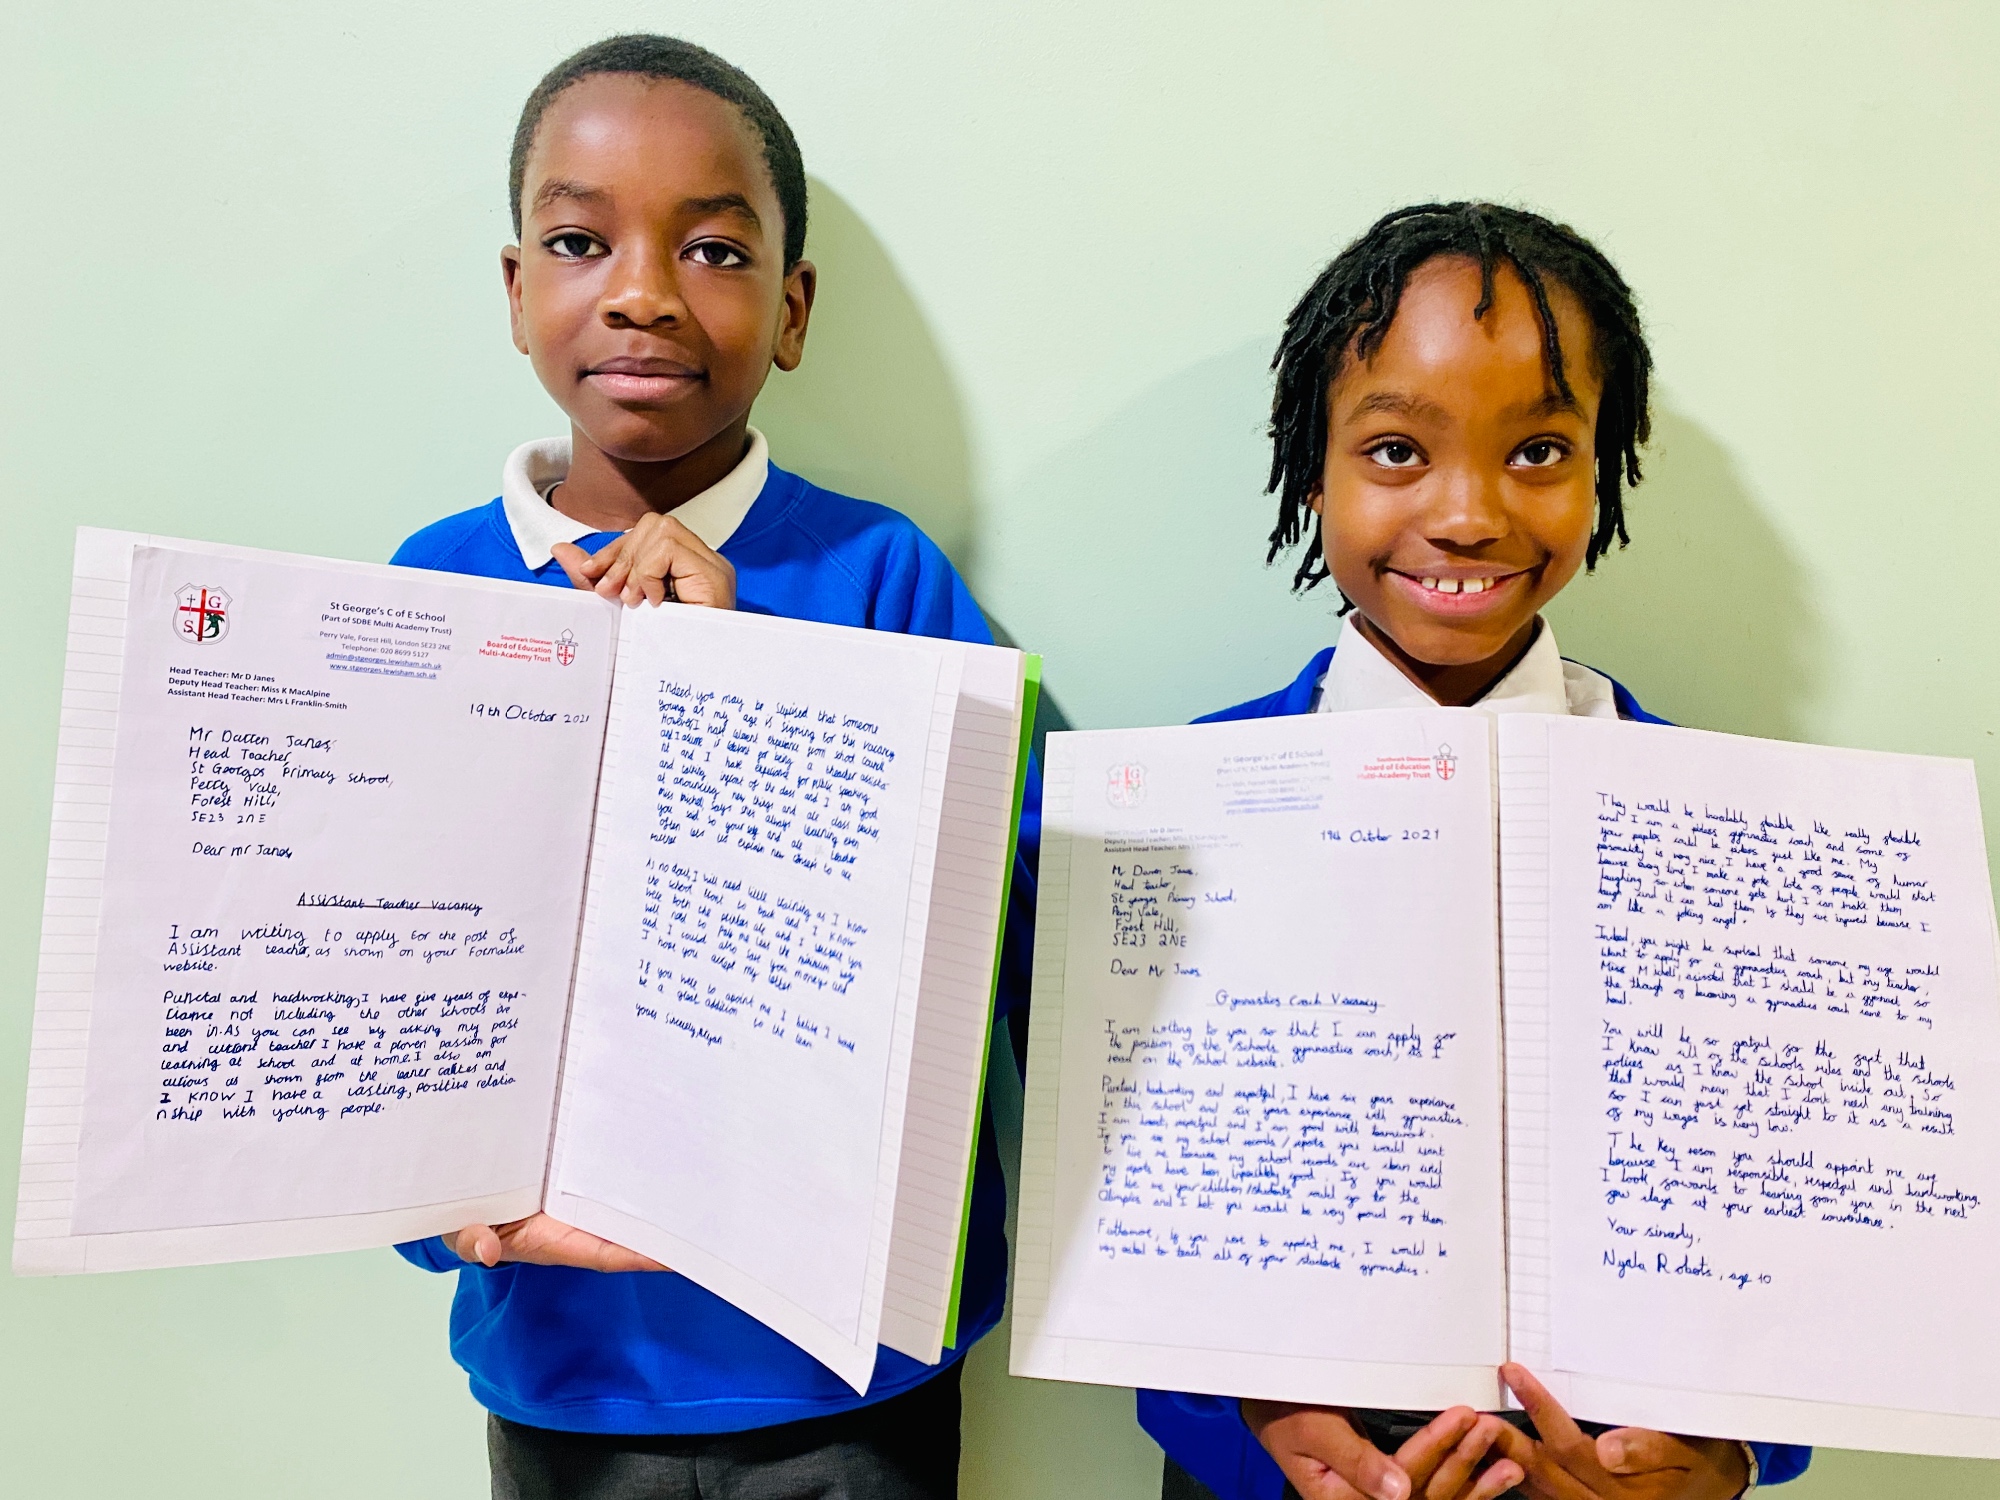 St George's C of E School
(Part of SDBE Multi Academy Trust)
Perry Vale, Forest Hill, London SE23 2NE
Telephone: 020 8699 5127
admin@stgeorges.lewisham.sch.uk
www.stgeorges.lewisham.sch.uk
G
S
Southwark Diocesan
Board of Education
Multi-Academy Trust
Head Teacher: Mr D Janes
Deputy Head Teacher: Miss K MacAlpine
Assistant Head Teacher: Mrs L Franklin-Smith
19th October 2021
Mr Darren Janes,
Head Teacher,
St Georges Primary School,
Perry Vale,
Forest Hill,
SE23 2NE
Dear Mr Janes,
Assistant Teacher Vacancy
I am writing to apply for the post of
Assistant teacher, as shown on your Formative
website.
Punctal and hardworking, I have five years of expe-
not including the other schools ive
been in. As you can see by asking my past
and current teacher I have a proven passion for
learning at school and at home. I also am
curious as shown from the and
I know I have a lasting, positive relatio
nship with young people.
Indeed, you may be suprised that someone
young as my age is signing for this vacancy
However, I have experience from school council
and I assume is for being a
and I have experience for public speaking
and talking infront of the class and I am good
at announcing new things and are class teacher,
Miss says always learning even
you said so yourself and are teacher
often lets us explain new to are
As no doubt, I will need little training as I know
the school front to back and I know
were both the are and I
will need to pay me the minimum wage
and I could also save you money and
I hope you accept my letter
If you were to appoint me I belive I would
be a great addition to the team
yours sincerely,
St George's C of E School
Southwark Diocesan
Board of Education
Multi-Academy Trust
19th October 2021
Mr Darren Janes,
Head teacher,
St georges Primary School,
Perry Vale,
Forest Hill,
SE23 2NE
Dear Mr Janes
Gymnastics Coach Vacancy
I am writing to you so that I can apply for
the position of the schools gymnastics coach, as I
read on the school website.
Punctual, hardworking and respectful, I have six years experience
in this school and six years experience with gymnastics.
I am honest, respectful and I am good with teamwork.
If you see my school records / reports you would want
to hire me because my school records are clean and
my reports have been good. If you would
to hire me your children/students could go to the
Olimpics and I bet you would be very proud of them.
if you were to appoint me, I would be
very to teach all of your students gymnastics.
They would be flexible like really flexible
and I am a gymnastics coach and some of
your could be just like me. My
personality is very nice, I have a good sense of humor
every time I make a joke lots of people would start
laughing so when someone gets hurt I can make them
laugh and it can heal them if they are injured because I
am like a joking angel.
Indeed, you might be suprised that someone my age would
want to apply for a gymnastics coach, but my teacher,
Miss that I should be a gymnast so
the though of becoming a gymnastics coach came to my
head.
You will be so gratful for the fact that
I know all of the schools rules and the schools
polices as I know the school inside out. So
that would mean that I dont need any training
so I can just get straight to it as a result
of my wages is very low.
The key reson you should appoint me are
because I am responsible, respectful and hardworking.
I look forwards to hearing from you in the next
few days at your earliest
Your sincerly,
Nyala Roberts, age 10